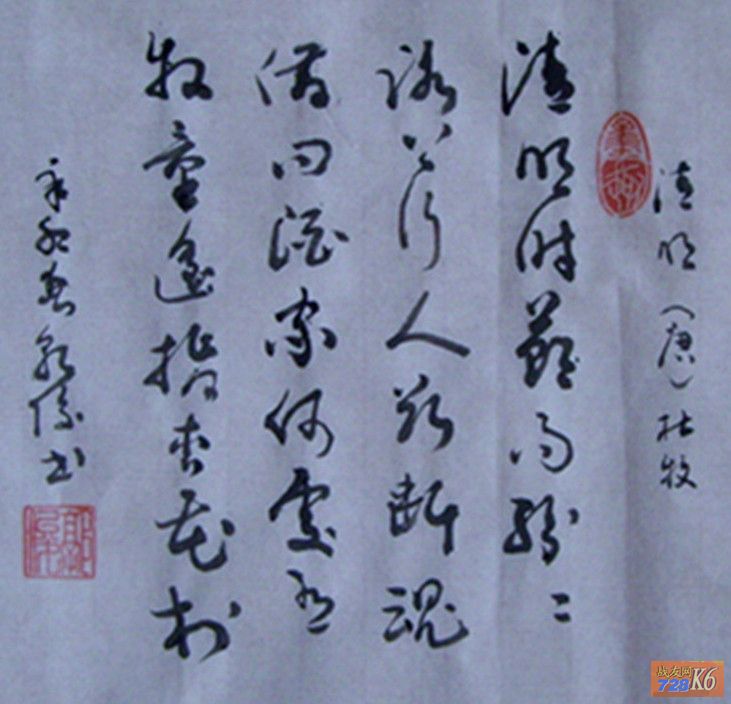 清明（唐）杜牧
清明时節雨紛〻
路上行人欲断魂
借问酒家何處有
牧童遥指杏花村
辛卯春书
战友网
728 K6